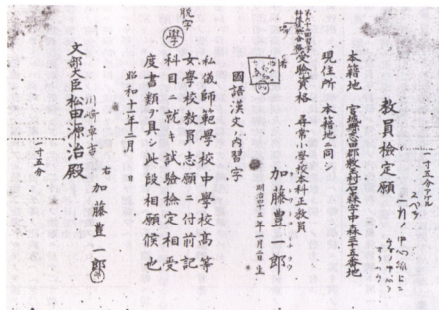 教員檢定願
本籍地 宮城縣志田郡敷玉村石森字中森三十五番地
現住所 本籍地ニ同シ
受驗資格 尋常小學校本科正教員
加藤豊一郎
明治四十三年一月二日生
國語漢文ノ内習字
私儀師範學校中學校高等
女學校教員志願ニ付前記
科目ニ就キ試驗檢定相受
度書類ヲ具シ此段相願候也
昭和十一年二月 日
右 加藤豊一郎
川崎卓吉
文部大臣松田源治殿
一寸五分
脱字
學
一寸五分アケル